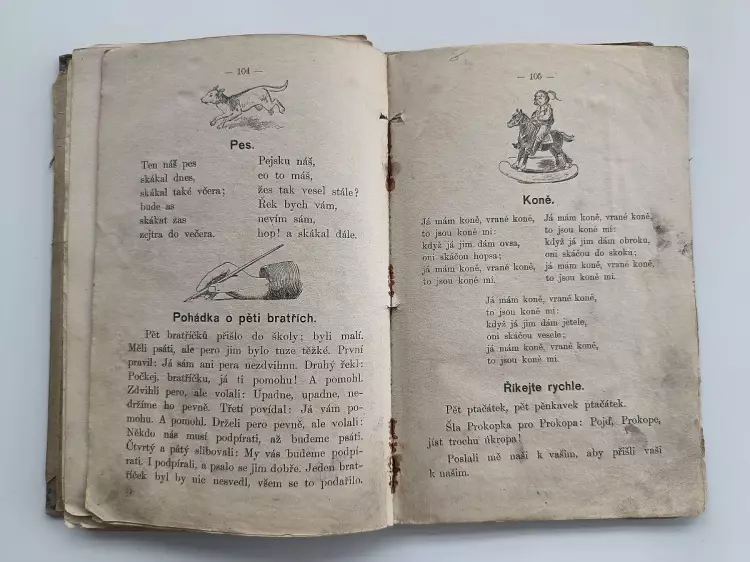 — 104 —
Pes.
Ten náš pes
skákal dnes,
skákal také včera;
bude as
skákat zas
zejtra do večera.
Pejsku náš,
co to máš,
žes tak vesel stále?
Řek bych vám,
nevím sám,
hop! a skákal dále.
Pohádka o pěti bratřích.
Pět bratříčků přišlo do školy; byli malí.
Měli psáti, ale pero jim bylo tuze těžké. První
pravil: Já sám ani pera nezdvihnu. Druhý řekl:
Počkej, bratříčku, já ti pomohu! A pomohl.
Zdvihli pero, ale volali: Upadne, upadne, ne-
držíme ho pevně. Třetí povídal: Já vám po-
mohu. A pomohl. Drželi pero pevně, ale volali:
Někdo nás musí podpírati, až budeme psáti.
Čtvrtý a pátý slibovali: My vás budeme podpí-
rati. I podpírali, a psalo se jim dobře. Jeden brat-
říček byl by nic nesvedl, všem se to podařilo.
— 105 —
Koně.
Já mám koně, vrané koně,
to jsou koně mi:
když já jim dám ovsa,
oni skáčou hopsa;
já mám koně, vrané koně,
to jsou koně mi.
Já mám koně, vrané koně,
to jsou koně mí:
když já jim dám obroku,
oni skáčou do skoku;
já mám koně, vrané koně,
to jsou koně mí.
Já mám koně, vrané koně,
to jsou koně mí:
když já jim dám jetele,
oni skáčou vesele;
já mám koně, vrané koně,
to jsou koně mí.
Říkejte rychle.
Pět ptačátek, pět pěnkavek ptačátek.
Šla Prokopka pro Prokopa: Pojď, Prokope,
jíst trochu úkropa!
Poslali mě naši k vašim, aby přišli vaši
k našim.